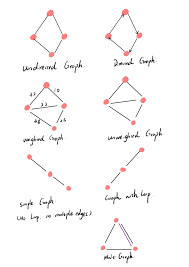 Undirected Graph.
Directed Graph.
72
10
22
48
25
weighted Graph
Unweighted Graph.
simple Graph
(No loop, no multiple edges)
Graph with loop
Multi Graph